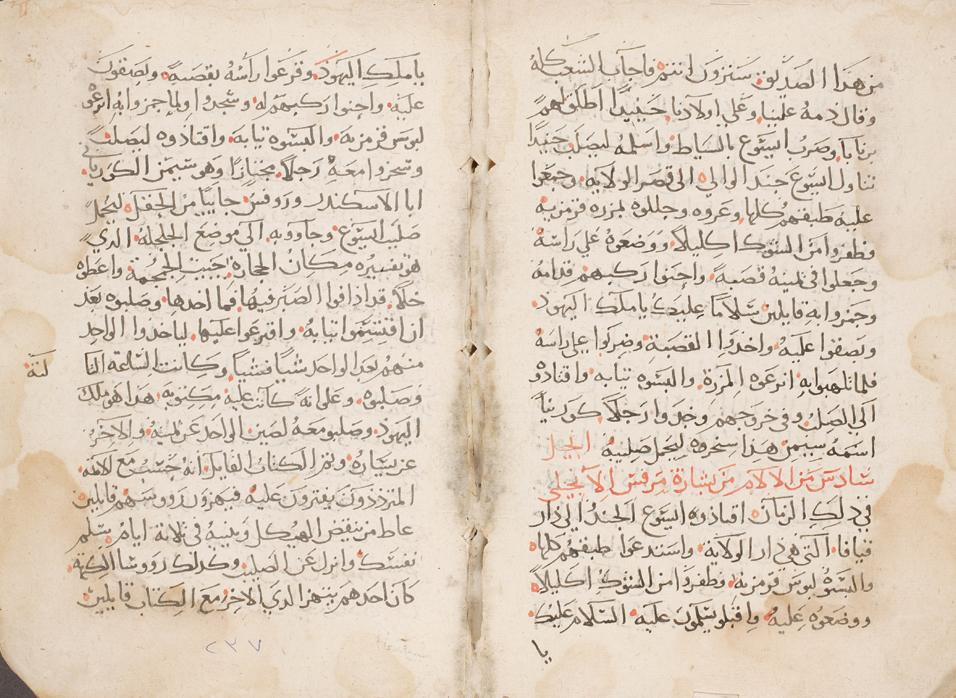 من هذا الصديق سترون انتم فاجاب الشعب كله
وقال دمه علينا وعلي اولادنا حينيدا اطلق لهم
برنابا وضرب ايسوع بالسياط واسلمه ليصلب حنيدا
تناول ايسوع جند الوالي الى قصر الولايه وجمعوا
عليه طبقتهم كلها وعروه وجللوه بمزره قرمزيه
وظفروا من الشوك اكليلاً ووضعوه على راسه
وجعلوا في يمينه قصبه واحنوا ركبهم قدامه
وجمزوا به قايلين سلاماً عليك يا ملك اليهود
وبصقوا عليه واخذوا القصبة وضربوا على راسه
فلما تلهبوا به انزعوه المزرة والبسوه تيابه واقتادوه
الى الصلب وفي خروجهم وجدوا رجلاً كورنياً
اسمه سيمن هذا سخروه ليحمل صليبه انجيل
سادس من الآلام من بشارة مرقس الانجيلي
في ذلك الزمان اقتادوه ايسوع الجند الى دار
قيافا التي هي دار الولاية واستدعوا طبقتهم كلها
والبسوه لبوس قرمزيه وظفروا من الشوك اكليلاً
ووضعوه عليه واقبلو يسلمون عليه السلام عليك
يا
يا ملك اليهود وقرعوا راسه بقصبه وبصقون
عليه واحنوا ركبهم له وسجدوا ولما جمزوا به انزعوه
لبوس قرمزيه والبسوه تيابه واقتادوه ليصلب
وسخروا معه رجلاً مختازاً وهو سيمن الكورياني
ابا الاسكندر وروفس جايياً من الحقل ليحمل
صليب ايسوع وجاووبه الى موضع الجلجله الذي
هو تفسيره مكان الحجارة حيث الجمجمة واعطوه
خلاً قد ادافوا الصبر فيها فما اخدها وصلبوه بعد
ان اقتسموا تيابه واقترعوا عليها لياخدوا الواحد
منهم بعد الواحد شياً فشياً وكانت الساعه التا
لته
وصلبوه وعلوانه كانت عليه مكتوبه هذا هو ملك
اليهود وصلبو معه لصين الواحد عن يمينه والاخر
عن يساره وتم الكتاب القايل انه حسب مع الاتمه
المترددون يفترون عليه فيهزون رووسهم قايلين
عاط من ينقض الهيكل ويبنيه في تلاته ايام سلم
نفسك وانزل عن الصليب وكذلك رووسا الكهنه
كان احدهم يتنهز الذي الاخر مع الكتاب قايلين
٢٣٧